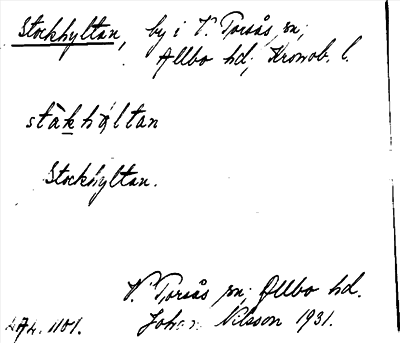 Stockhyltan, by i V. Torsås sn,
Allbo hd, Kronob. l.
stàkhýltan
Stockhyltan.
V. Torsås sn, Allbo hd.
Johan Nilsson 1931.